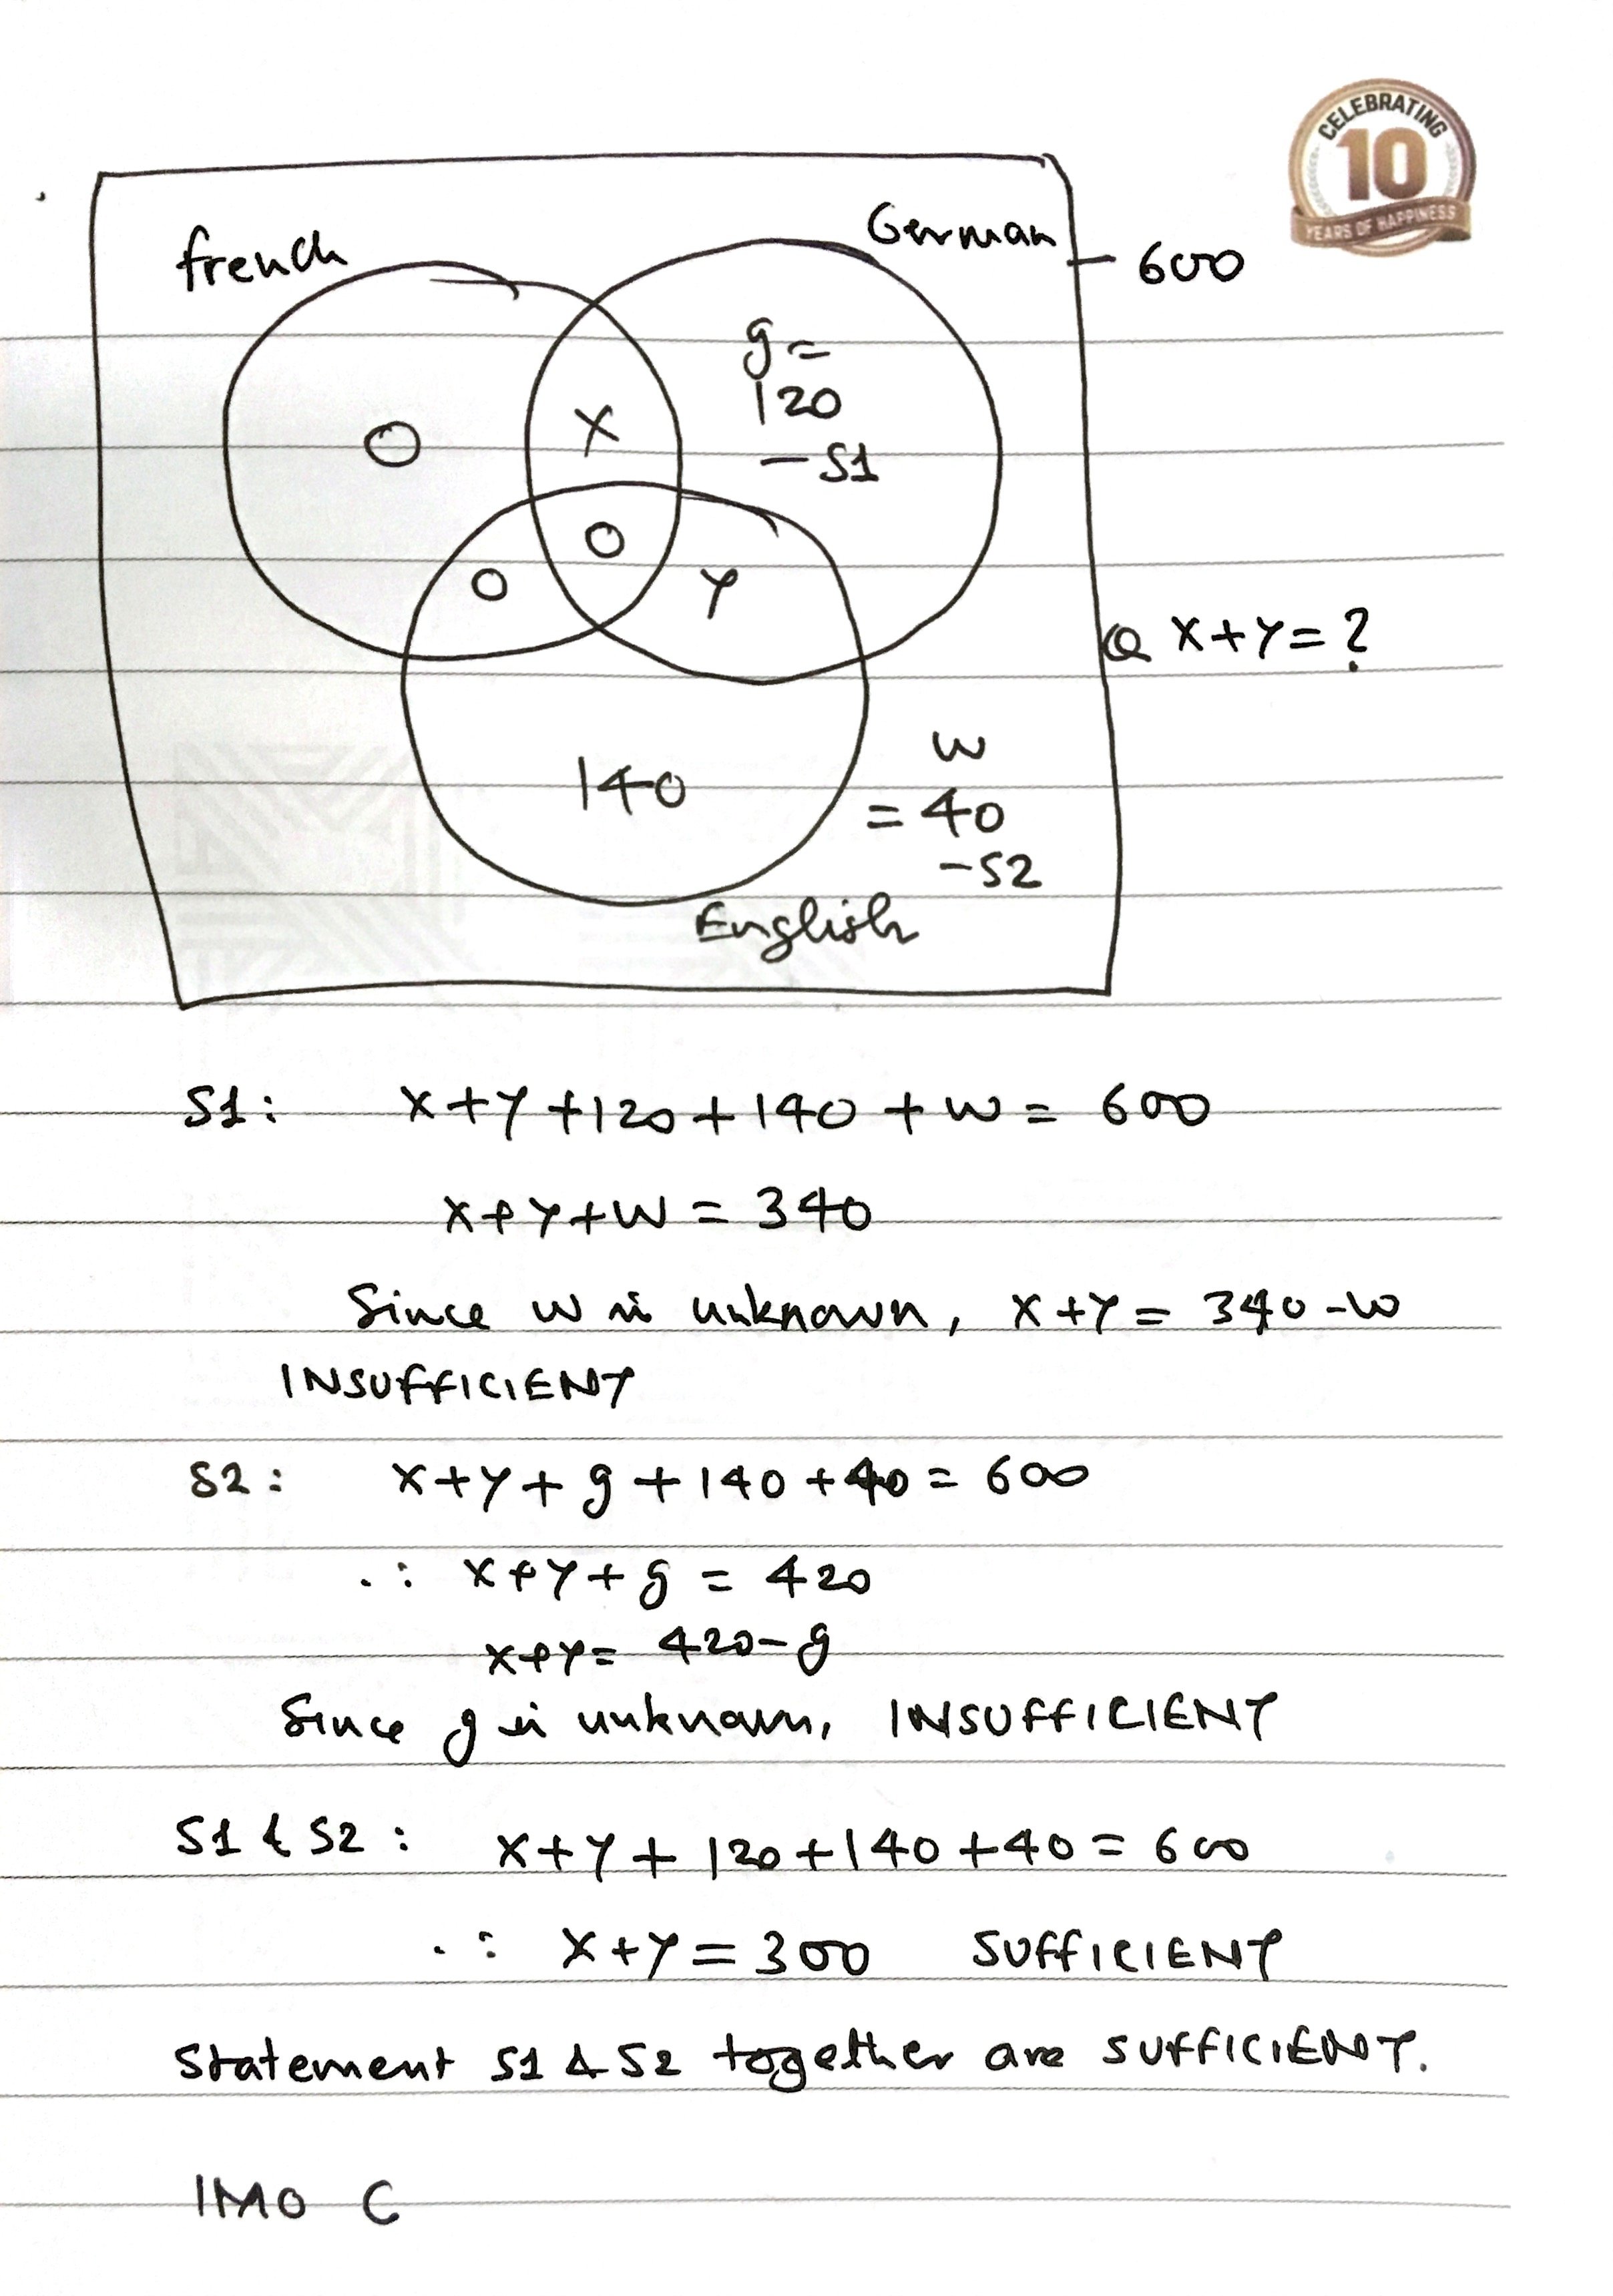 CELEBRATING
10
YEARS OF HAPPINESS
french
German
600
g =
120
- S1
X
O
O
O
Y
Q X+Y=?
140
W
= 40
- S2
English
S1: X+Y+120+140+W = 600
X+Y+W = 340
Since W is unknown, X+Y = 340-W
INSUFFICIENT
S2: X+Y+g+140+40 = 600
∴ X+Y+g = 420
X+Y = 420-g
Since g is unknown, INSUFFICIENT
S1 & S2: X+Y+120+140+40 = 600
∴ X+Y = 300 SUFFICIENT
Statement S1 & S2 together are SUFFICIENT.
IMO C